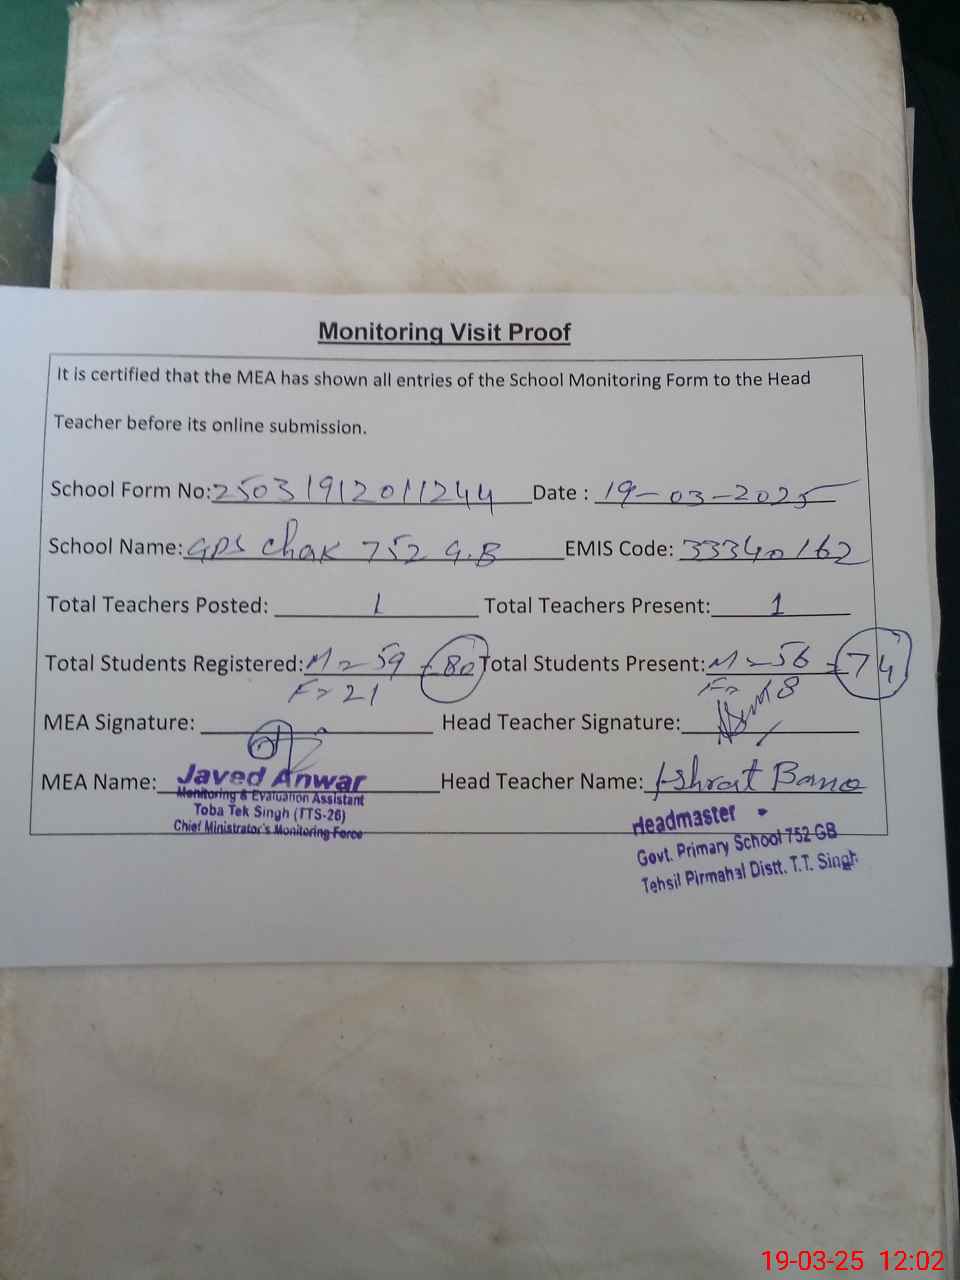 Monitoring Visit Proof
It is certified that the MEA has shown all entries of the School Monitoring Form to the Head
Teacher before its online submission.
School Form No: 25031912011244 Date : 19-03-2025
School Name: GPS Chak 752 G.B EMIS Code: 33340162
Total Teachers Posted: 1 Total Teachers Present: 1
Total Students Registered: M=59 =80 Total Students Present: M=56 =74
F=21 F=18
MEA Signature: Head Teacher Signature:
MEA Name: Javed Anwar Head Teacher Name: Ishrat Bano
Monitoring & Evaluation Assistant
Toba Tek Singh (TTS-26)
Chief Ministrator's Monitoring Force
Headmaster
Govt. Primary School 752 GB
Tehsil Pirmahal Distt. T.T. Singh
19-03-25 12:02